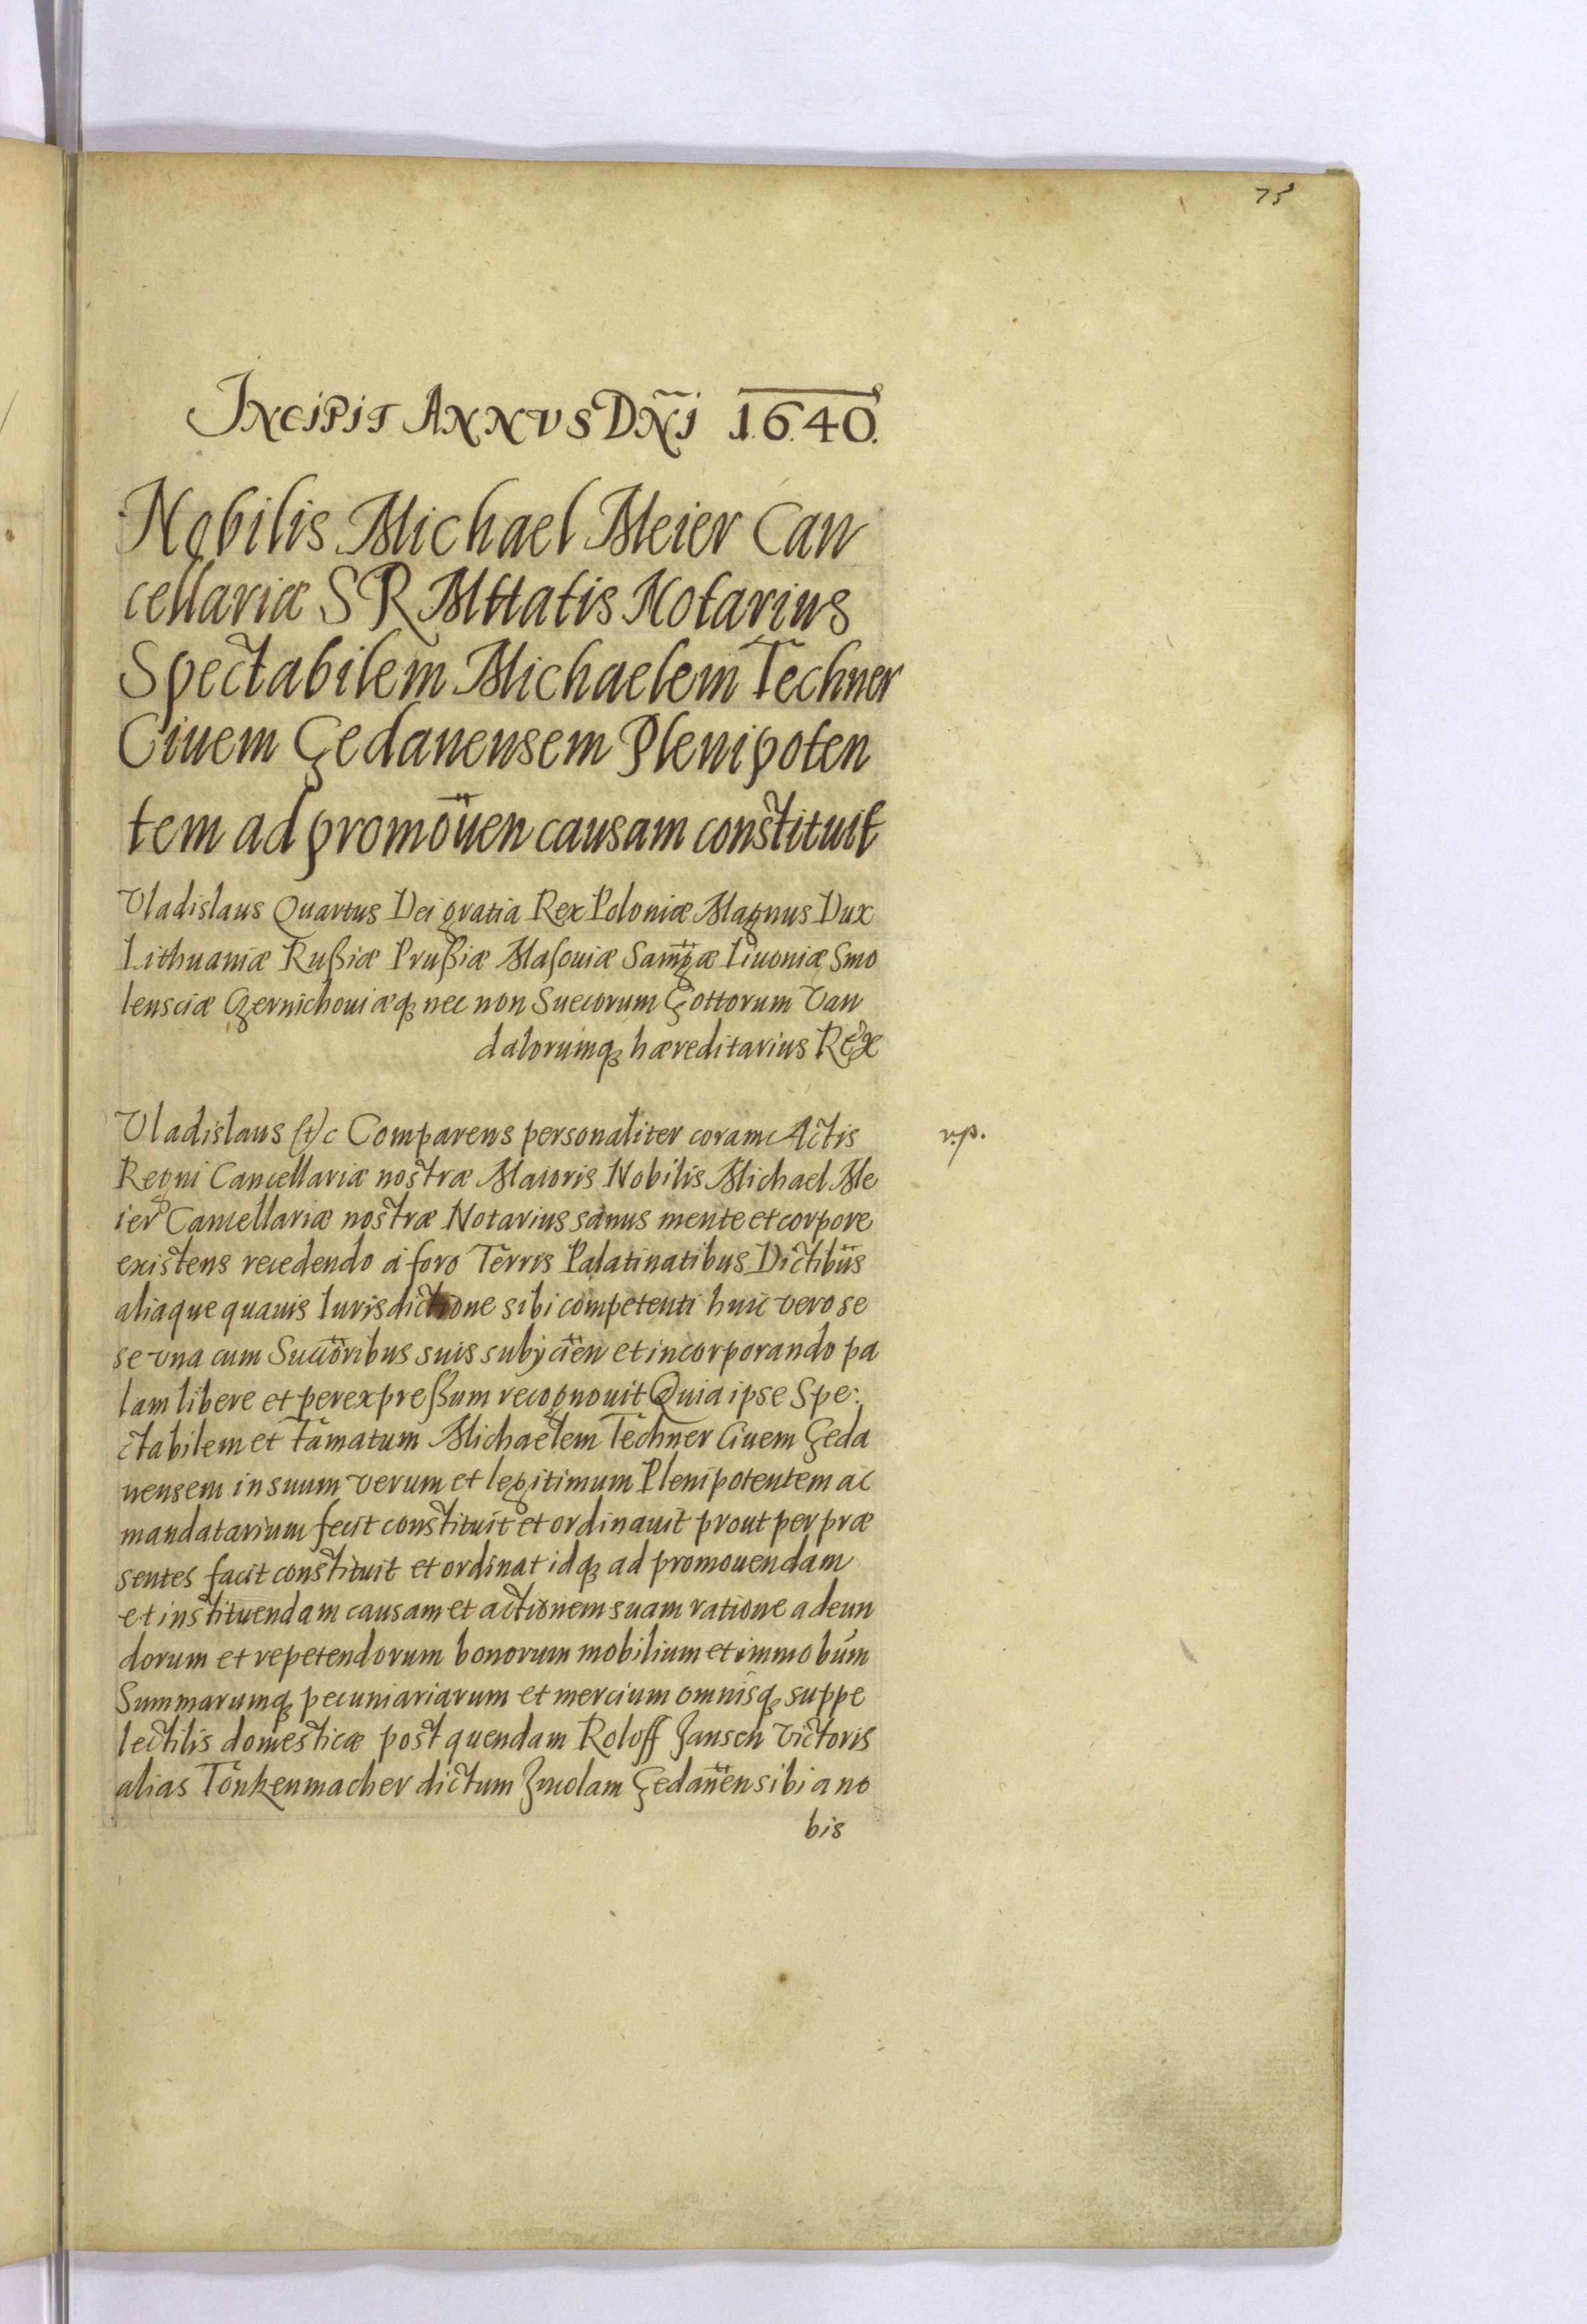 75
INCIPIT ANNVS DÑI 1640.
Nobilis Michael Meier Can
cellariæ SR Mttatis Notarius
Spectabilem Michaelem Techner
Ciuem Gedanensem Plenipoten
tem ad promoüen causam constituit
Vladislaus Quartus Dei gratia Rex Poloniæ Magnus Dux
Lithuaniæ Rußiæ Prußiæ Masouiæ Samgæ Liuoniæ Smo
lensciæ Czernichouiæq nec non Suecorum Gottorum Van
dalorumq hæreditarius Rex
Vladislaus etc Comparens personaliter coram Actis
Regni Cancellariæ nostræ Maioris Nobilis Michael Me
ier Cancellariæ nostræ Notarius sanus mente et corpore
existens recedendo a foro Terris Palatinatibus Dictibüs
aliaque quauis Iurisdictione sibi competenti huic vero se
se vna cum Succöribus suis subÿcien et incorporando pa
lam libere et per expreßum recognouit Quia ipse Spe:
ctabilem et famatum Michaelem Techner Ciuem Geda
nensem in suum verum et legitimum Plenipotentem ac
mandatarium fecit constituit et ordinauit prout per præ
sentes facit constituit et ordinat idq ad promouendam
et instituendam causam et actionem suam ratione adeun
dorum et repetendorum bonorum mobilium et immobum
Summarumq pecuniariarum et mercium omnisq suppe
lectilis domesticæ post quendam Roloff Jansen Victoris
alias Tönkenmacher dictum Incolam Gedanen sibi a no
bis
v.p.